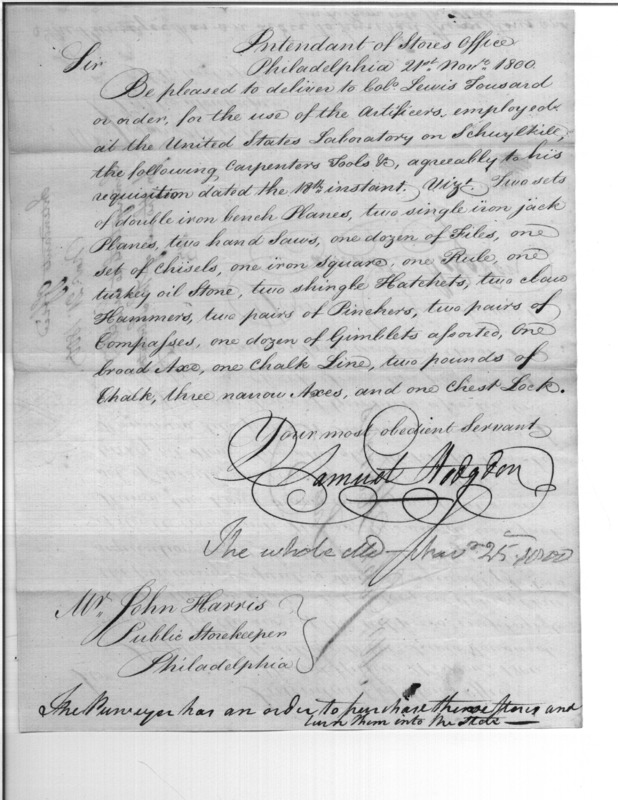 Intendant of Stores Office
Philadelphia 21st Novr. 1800.
Sir
Be pleased to deliver to Colo. Lewis Tousard
or order, for the use of the Artificers employed
at the United States Laboratory on Schuylkill,
the following Carpenters Tools &c, agreeably to his
requisition dated the 18th instant. Vizt. Two sets
of double iron bench Planes, two single iron jack
Planes, two hand Saws, one dozen of Files, one
set of Chisels, one iron Square, one Rule, one
turkey oil Stone, two shingle Hatchets, two claw
Hammers, two pairs of Pinchers, two pairs of
Compasses, one dozen of Gimblets assorted, One
broad Axe, one Chalk Line, two pounds of
Chalk, three narrow Axes, and one Chest Lock.
Your most obedient Servant
Samuel Hodgdon
The whole Novr 25. 1800
Mr. John Harris
Public Storekeeper
Philadelphia
The Purveyor has an order to purchase these Stores and
turn them into the Store —